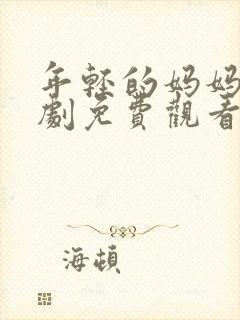 年輕的妈妈
劇免費觀看
海頓